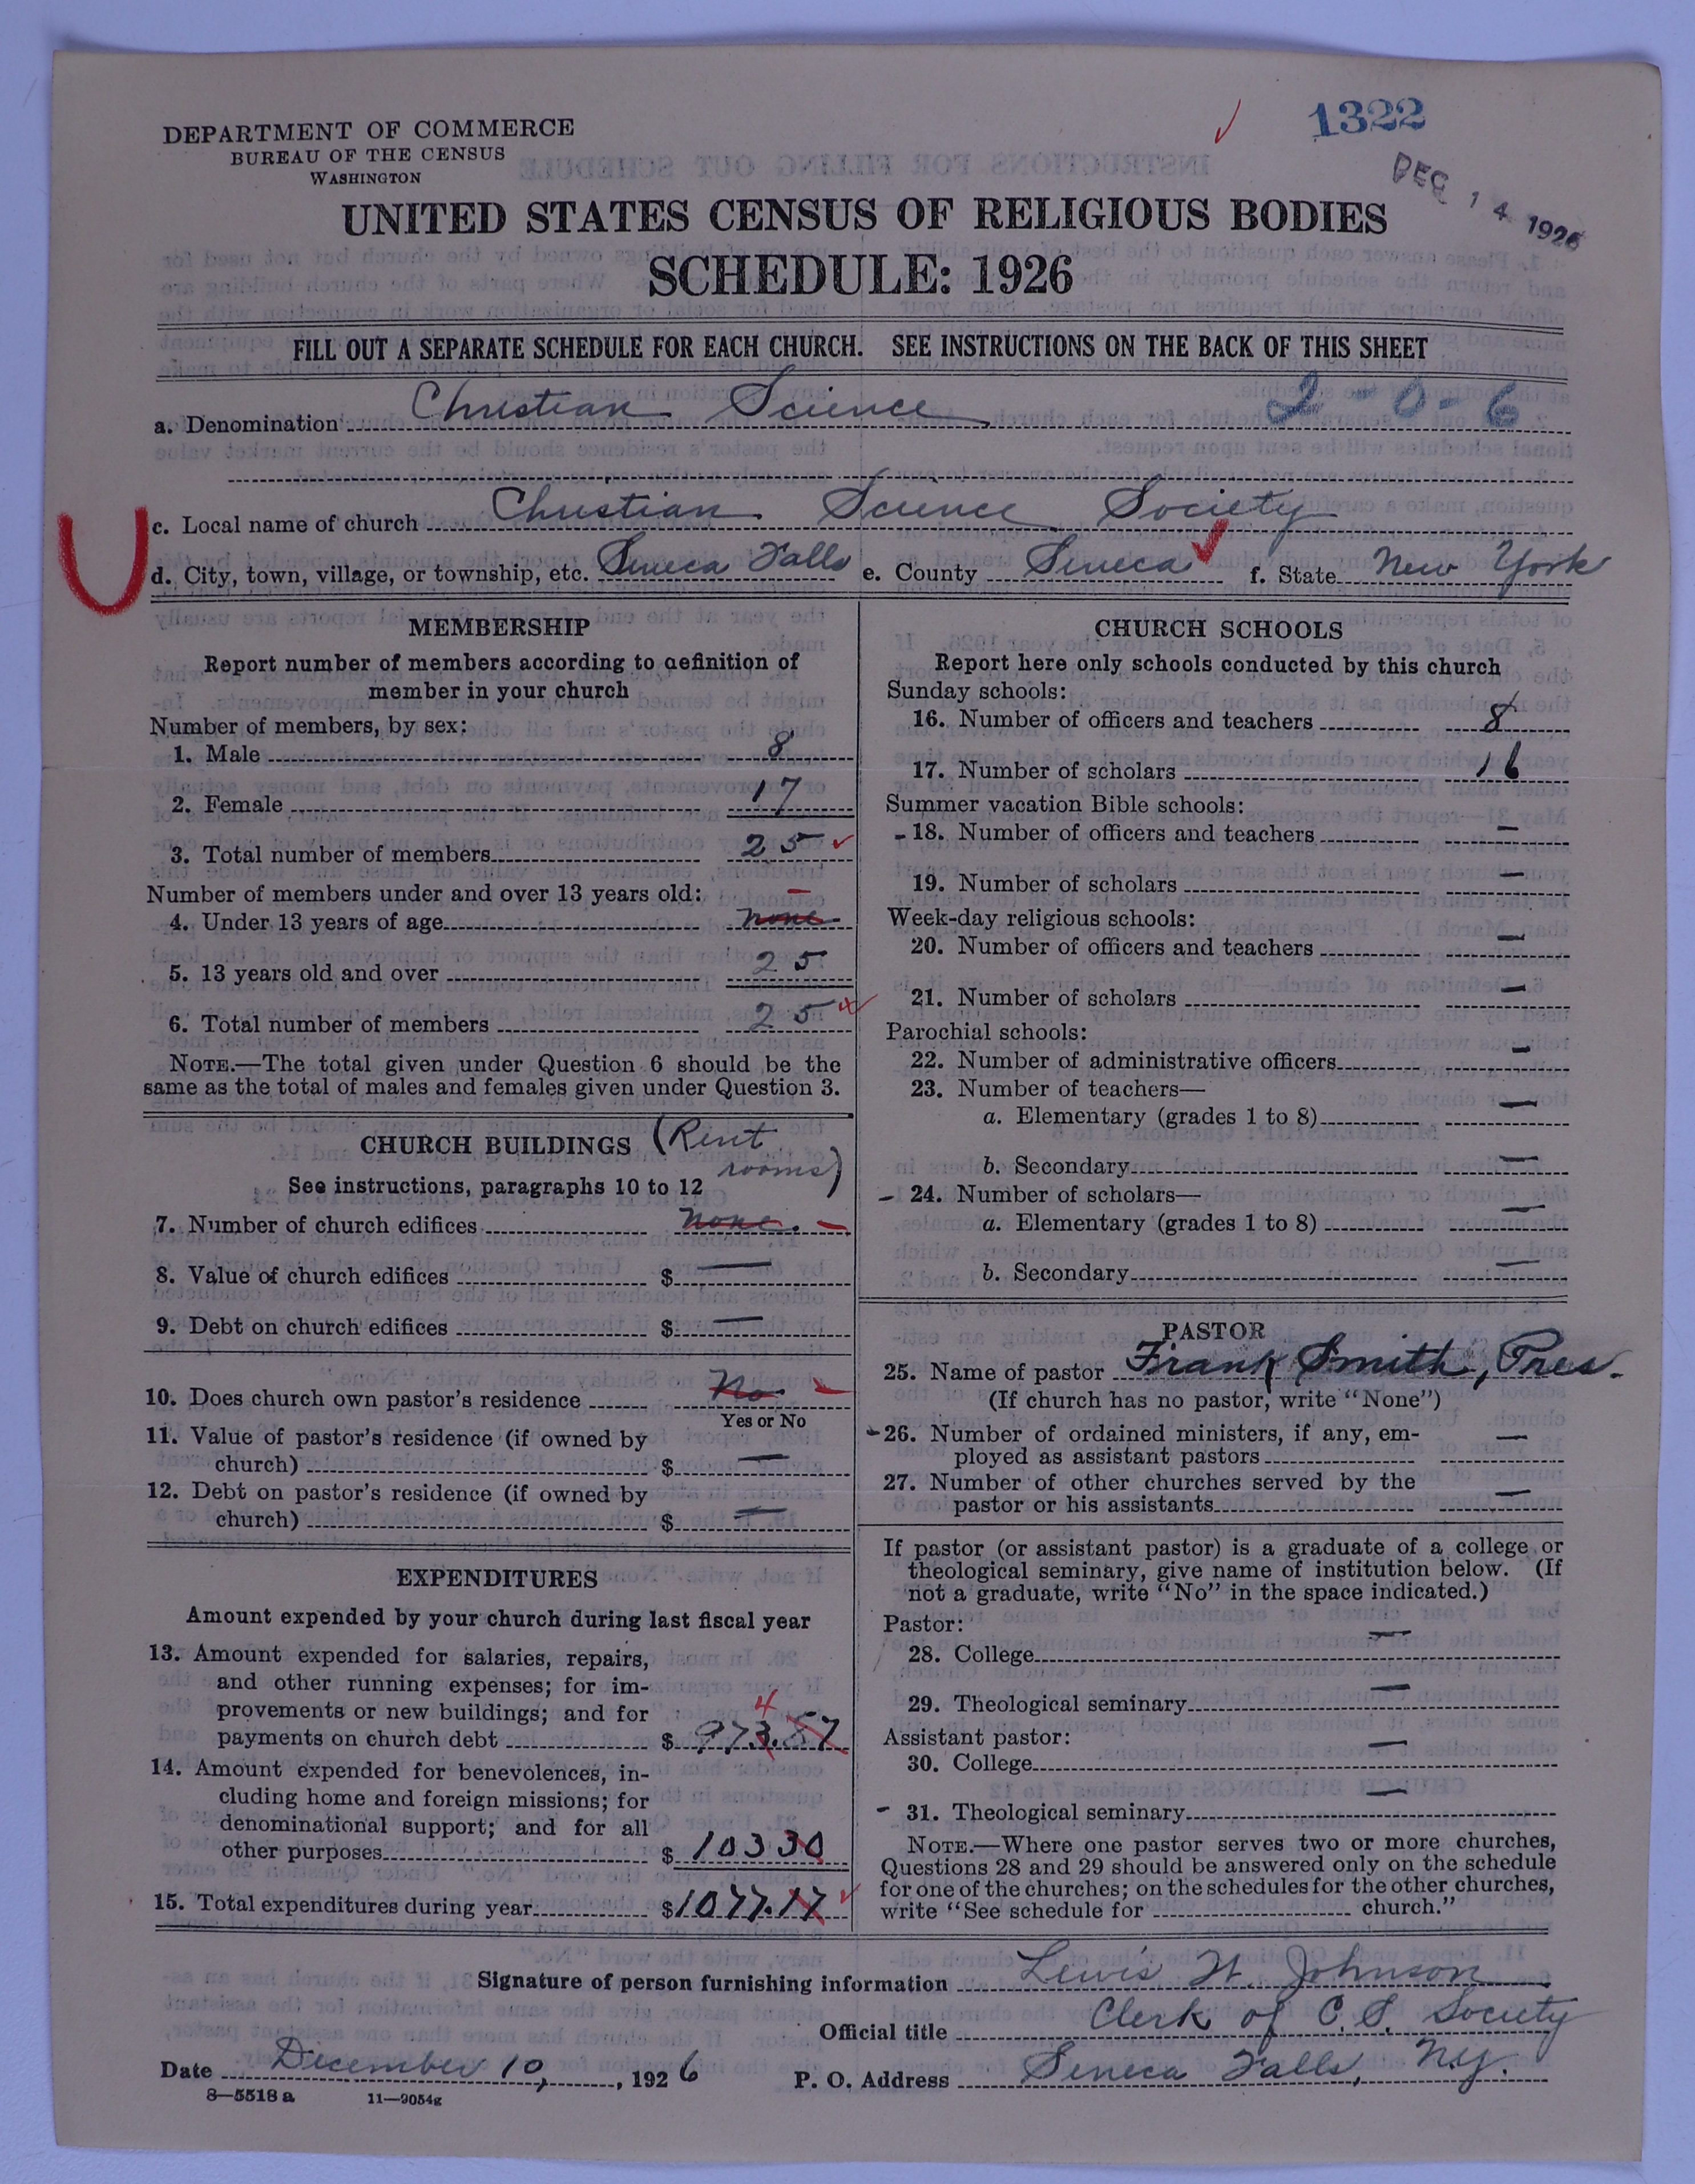 1322
DEC 14 1926
DEPARTMENT OF COMMERCE
BUREAU OF THE CENSUS
WASHINGTON
UNITED STATES CENSUS OF RELIGIOUS BODIES
SCHEDULE: 1926
FILL OUT A SEPARATE SCHEDULE FOR EACH CHURCH. SEE INSTRUCTIONS ON THE BACK OF THIS SHEET
a. Denomination Christian Science 2-0-6
c. Local name of church Christian Science Society
d. City, town, village, or township, etc. Seneca Falls e. County Seneca f. State New York
MEMBERSHIP
Report number of members according to definition of
member in your church
Number of members, by sex:
1. Male 8
2. Female 17
3. Total number of members 25
Number of members under and over 13 years old:
4. Under 13 years of age none
5. 13 years old and over 25
6. Total number of members 25
NOTE.—The total given under Question 6 should be the
same as the total of males and females given under Question 3.
CHURCH BUILDINGS (Rent
rooms)
See instructions, paragraphs 10 to 12
7. Number of church edifices none. —
8. Value of church edifices $ —
9. Debt on church edifices $ —
10. Does church own pastor's residence No —
Yes or No
11. Value of pastor's residence (if owned by
church) $ —
12. Debt on pastor's residence (if owned by
church) $ —
EXPENDITURES
Amount expended by your church during last fiscal year
13. Amount expended for salaries, repairs,
and other running expenses; for im-
provements or new buildings; and for
4
payments on church debt $ 973.57
14. Amount expended for benevolences, in-
cluding home and foreign missions; for
denominational support; and for all
other purposes $ 10330
15. Total expenditures during year $1077.17
CHURCH SCHOOLS
Report here only schools conducted by this church
Sunday schools:
16. Number of officers and teachers 8
17. Number of scholars 16
Summer vacation Bible schools:
18. Number of officers and teachers —
19. Number of scholars —
Week-day religious schools:
20. Number of officers and teachers —
21. Number of scholars —
Parochial schools:
22. Number of administrative officers —
23. Number of teachers—
a. Elementary (grades 1 to 8) —
b. Secondary —
24. Number of scholars—
a. Elementary (grades 1 to 8) —
b. Secondary —
PASTOR
25. Name of pastor Frank Smith, Pres.
(If church has no pastor, write "None")
26. Number of ordained ministers, if any, em-
ployed as assistant pastors —
27. Number of other churches served by the
pastor or his assistants —
If pastor (or assistant pastor) is a graduate of a college or
theological seminary, give name of institution below. (If
not a graduate, write "No" in the space indicated.)
Pastor:
28. College —
29. Theological seminary —
Assistant pastor:
30. College —
31. Theological seminary —
NOTE.—Where one pastor serves two or more churches,
Questions 28 and 29 should be answered only on the schedule
for one of the churches; on the schedules for the other churches,
write "See schedule for church."
Signature of person furnishing information Lewis W. Johnson
Official title Clerk of C. S. Society
Date December 10, 1926 P. O. Address Seneca Falls, N.Y.
8—5518 a 11—9054g